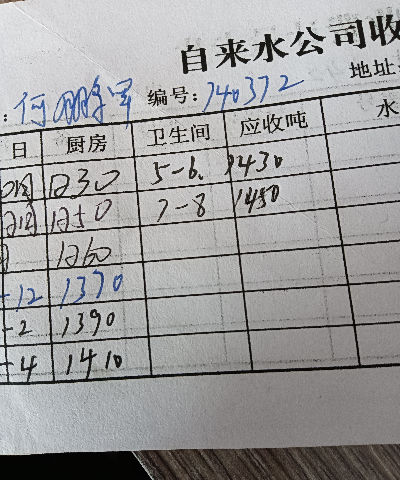 自来水公司收
: 何 编号: 740372 地址:
日 厨房 卫生间 应收吨 水
1230 5-6. 1430
1250 7-8 1450
1260
-12 1370
-2 1390
-4 1410